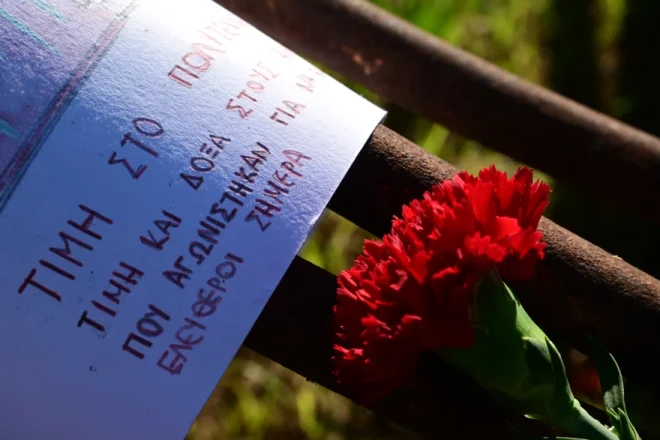 ΤΙΜΗ ΣΤΟ ΠΟΛΥΤΕ
ΤΙΜΗ ΚΑΙ ΔΟΞΑ ΣΤΟΥΣ
ΠΟΥ ΑΓΩΝΙΣΤΗΚΑΝ ΓΙΑ ΝΑ
ΕΛΕΥΘΕΡΟΙ ΣΗΜΕΡΑ